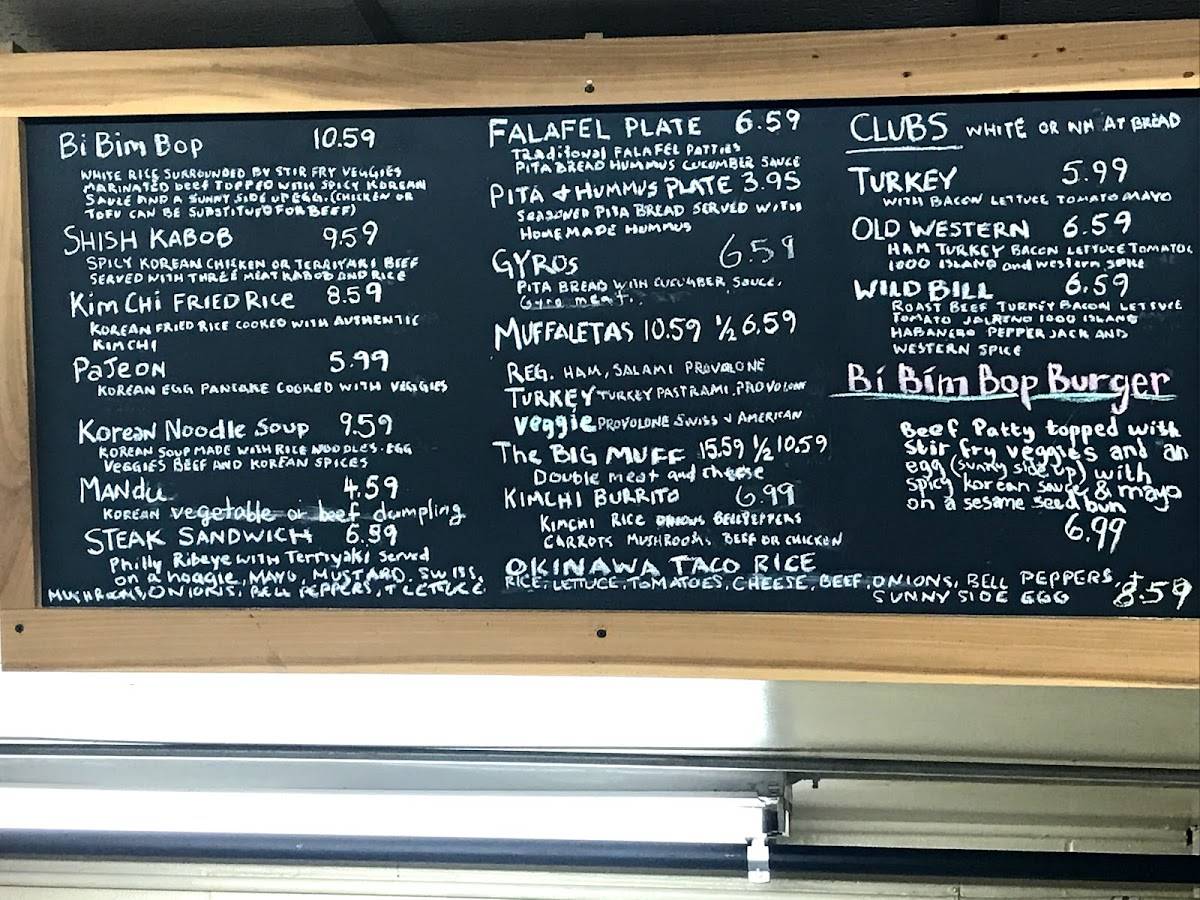 Bi Bim Bop 10.59
WHITE RICE SURROUNDED BY STIR FRY VEGGIES
MARINATED beef TOPPED WITH SPICY KOREAN
SAUCE AND A SUNNY SIDE UP EGG. (CHICKEN OR
TOFU CAN BE SUBSTITUTD FOR BEEF)
SHISH KABOB 9.59
SPICY KOREAN CHICKEN OR TERRIYAKI BEEF
SERVED WITH THREE MEAT KABOB AND RICE
Kim CHi FRIED RiCe 8.59
KOREAN FRIED RICE COOKED WITH AUTHENTIC
KIMCHI
PaJeON 5.99
KOREAN EGG PANCAKE COOKED WITH VEGGIES
Korean Noodle Soup 9.59
KOREAN SOUP MADE WITH RICE NOODLES. EGG
VEGGIES BEEF AND KOREAN SPICES
MANdu 4.59
KOREAN vegetable or beef dumpling
STEAK SANDWICH 6.59
Philly Ribeye WITH Terriyaki Served
on a hoagie, MAYO, MUSTARD, SWISS,
MUSHROOMS, ONIONS, BELL PEPPERS, + LETTUCE
FALAFEL PLATE 6.59
TRaditonal FALAFEL PATTIES
PITA BREAD HUMMUS CUCUMBER SAUCE
PITA + HUMMUS PLATE 3.95
SEASONED PITA BREAD SERVED WITH
HOMEMADE HUMMUS
GYROS 6.59
PITA BREAD WITH CUCUMBER SAUCE,
Gyro meat..
MUFFALETAS 10.59 ½ 6.59
REG. HAM, SALAMI PROVOLONE
TURKEY TURKEY PASTRAMI, PROVOLONE
veggie PROVOLONE SWISS + AMERICAN
The BIG MUFF 15.59 ½ 10.59
Double meat and cheese
KIMCHI BURRITO 6.99
KIMCHI RICE ONIONS BELLPEPPERS
CARROTS MUSHROOMS BEEF OR CHICKEN
OKINAWA TACO RICE
RICE, LETTUCE, TOMATOES, CHEESE, BEEF, ONIONS, BELL PEPPERS, +
SUNNY SIDE EGG 8.59
CLUBS WHITE OR WHEAT BREAD
TURKEY 5.99
WITH BACON LETTUCE TOMATO MAYO
OLD WESTERN 6.59
HAM TURKEY BACON LETTUCE TOMATOE
1000 ISLAND and western SPICE
WILD BILL 6.59
ROAST BEEF TURKEY BACON LETTUCE
TOMATO JALAPENO 1000 ISLAND
HABANERO PEPPER JACK AND
WESTERN SPICE
Bi Bim Bop Burger
Beef Patty topped with
Stir fry veggies and an
egg (sunny side up) with
spicy korean sauce & mayo
on a sesame seed bun
6.99